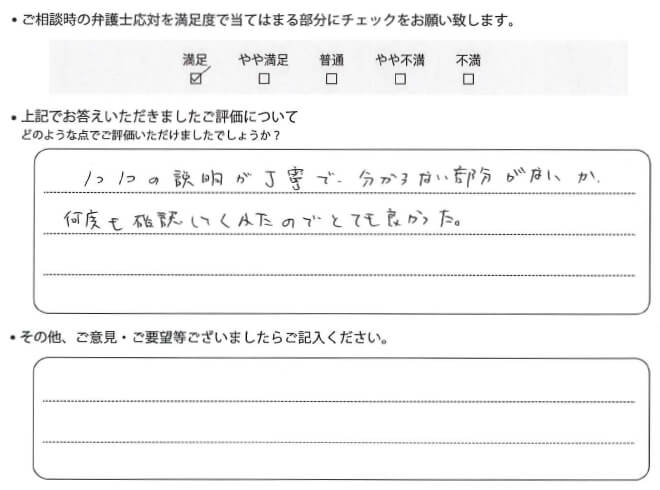 • ご相談時の弁護士応対を満足度で当てはまる部分にチェックをお願い致します。
満足 やや満足 普通 やや不満 不満
☑ ☐ ☐ ☐ ☐
• 上記でお答えいただきましたご評価について
どのような点でご評価いただけましたでしょうか？
1つ1つの説明が丁寧で、分からない部分がないか、
何度も確認してくれたのでとても良かった。
• その他、ご意見・ご要望等ございましたらご記入ください。